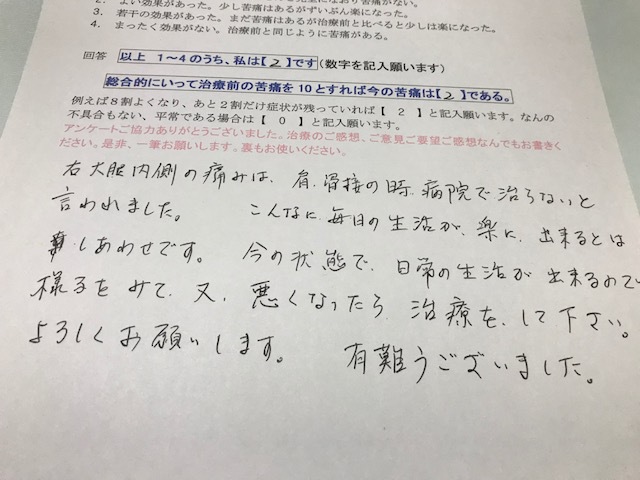 2. よい効果があった。少し苦痛はあるがずいぶん楽になった。
3. 若干の効果があった。まだ苦痛はあるが治療前と比べると少しは楽になった。
4. まったく効果がない。治療前と同じように苦痛がある。
回答 以上 1〜4のうち、私は【2】です(数字を記入願います)
総合的にいって治療前の苦痛を10とすれば今の苦痛は【2】である。
例えば8割よくなり、あと2割だけ症状が残っていれば【 2 】と記入願います。なんの
不具合もない、平常である場合は【 0 】と記入願います。
アンケートご協力ありがとうございました。治療のご感想、ご意見ご要望ご感想なんでもお書きく
ださい。是非、一筆お願いします。裏もお使いください。
右大腿内側の痛みは、骨接の時、病院で治らないと
言われました。 こんなに、毎日の生活が、楽に、出来るとは
しあわせです。 今の状態で、日常の生活が出来るので
様子をみて、又、悪くなったら治療を、して下さい。
よろしくお願いします。 有難うございました。